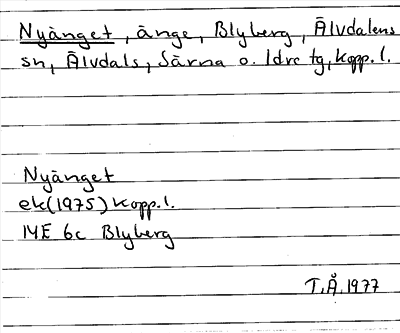 Nyänget, änge, Blyberg, Älvdalens
sn, Älvdals, Särna o. Idre tg, Kopp. l.
Nyänget
ek (1975) Kopp. l.
14E 6c Blyberg
T.Å. 1977